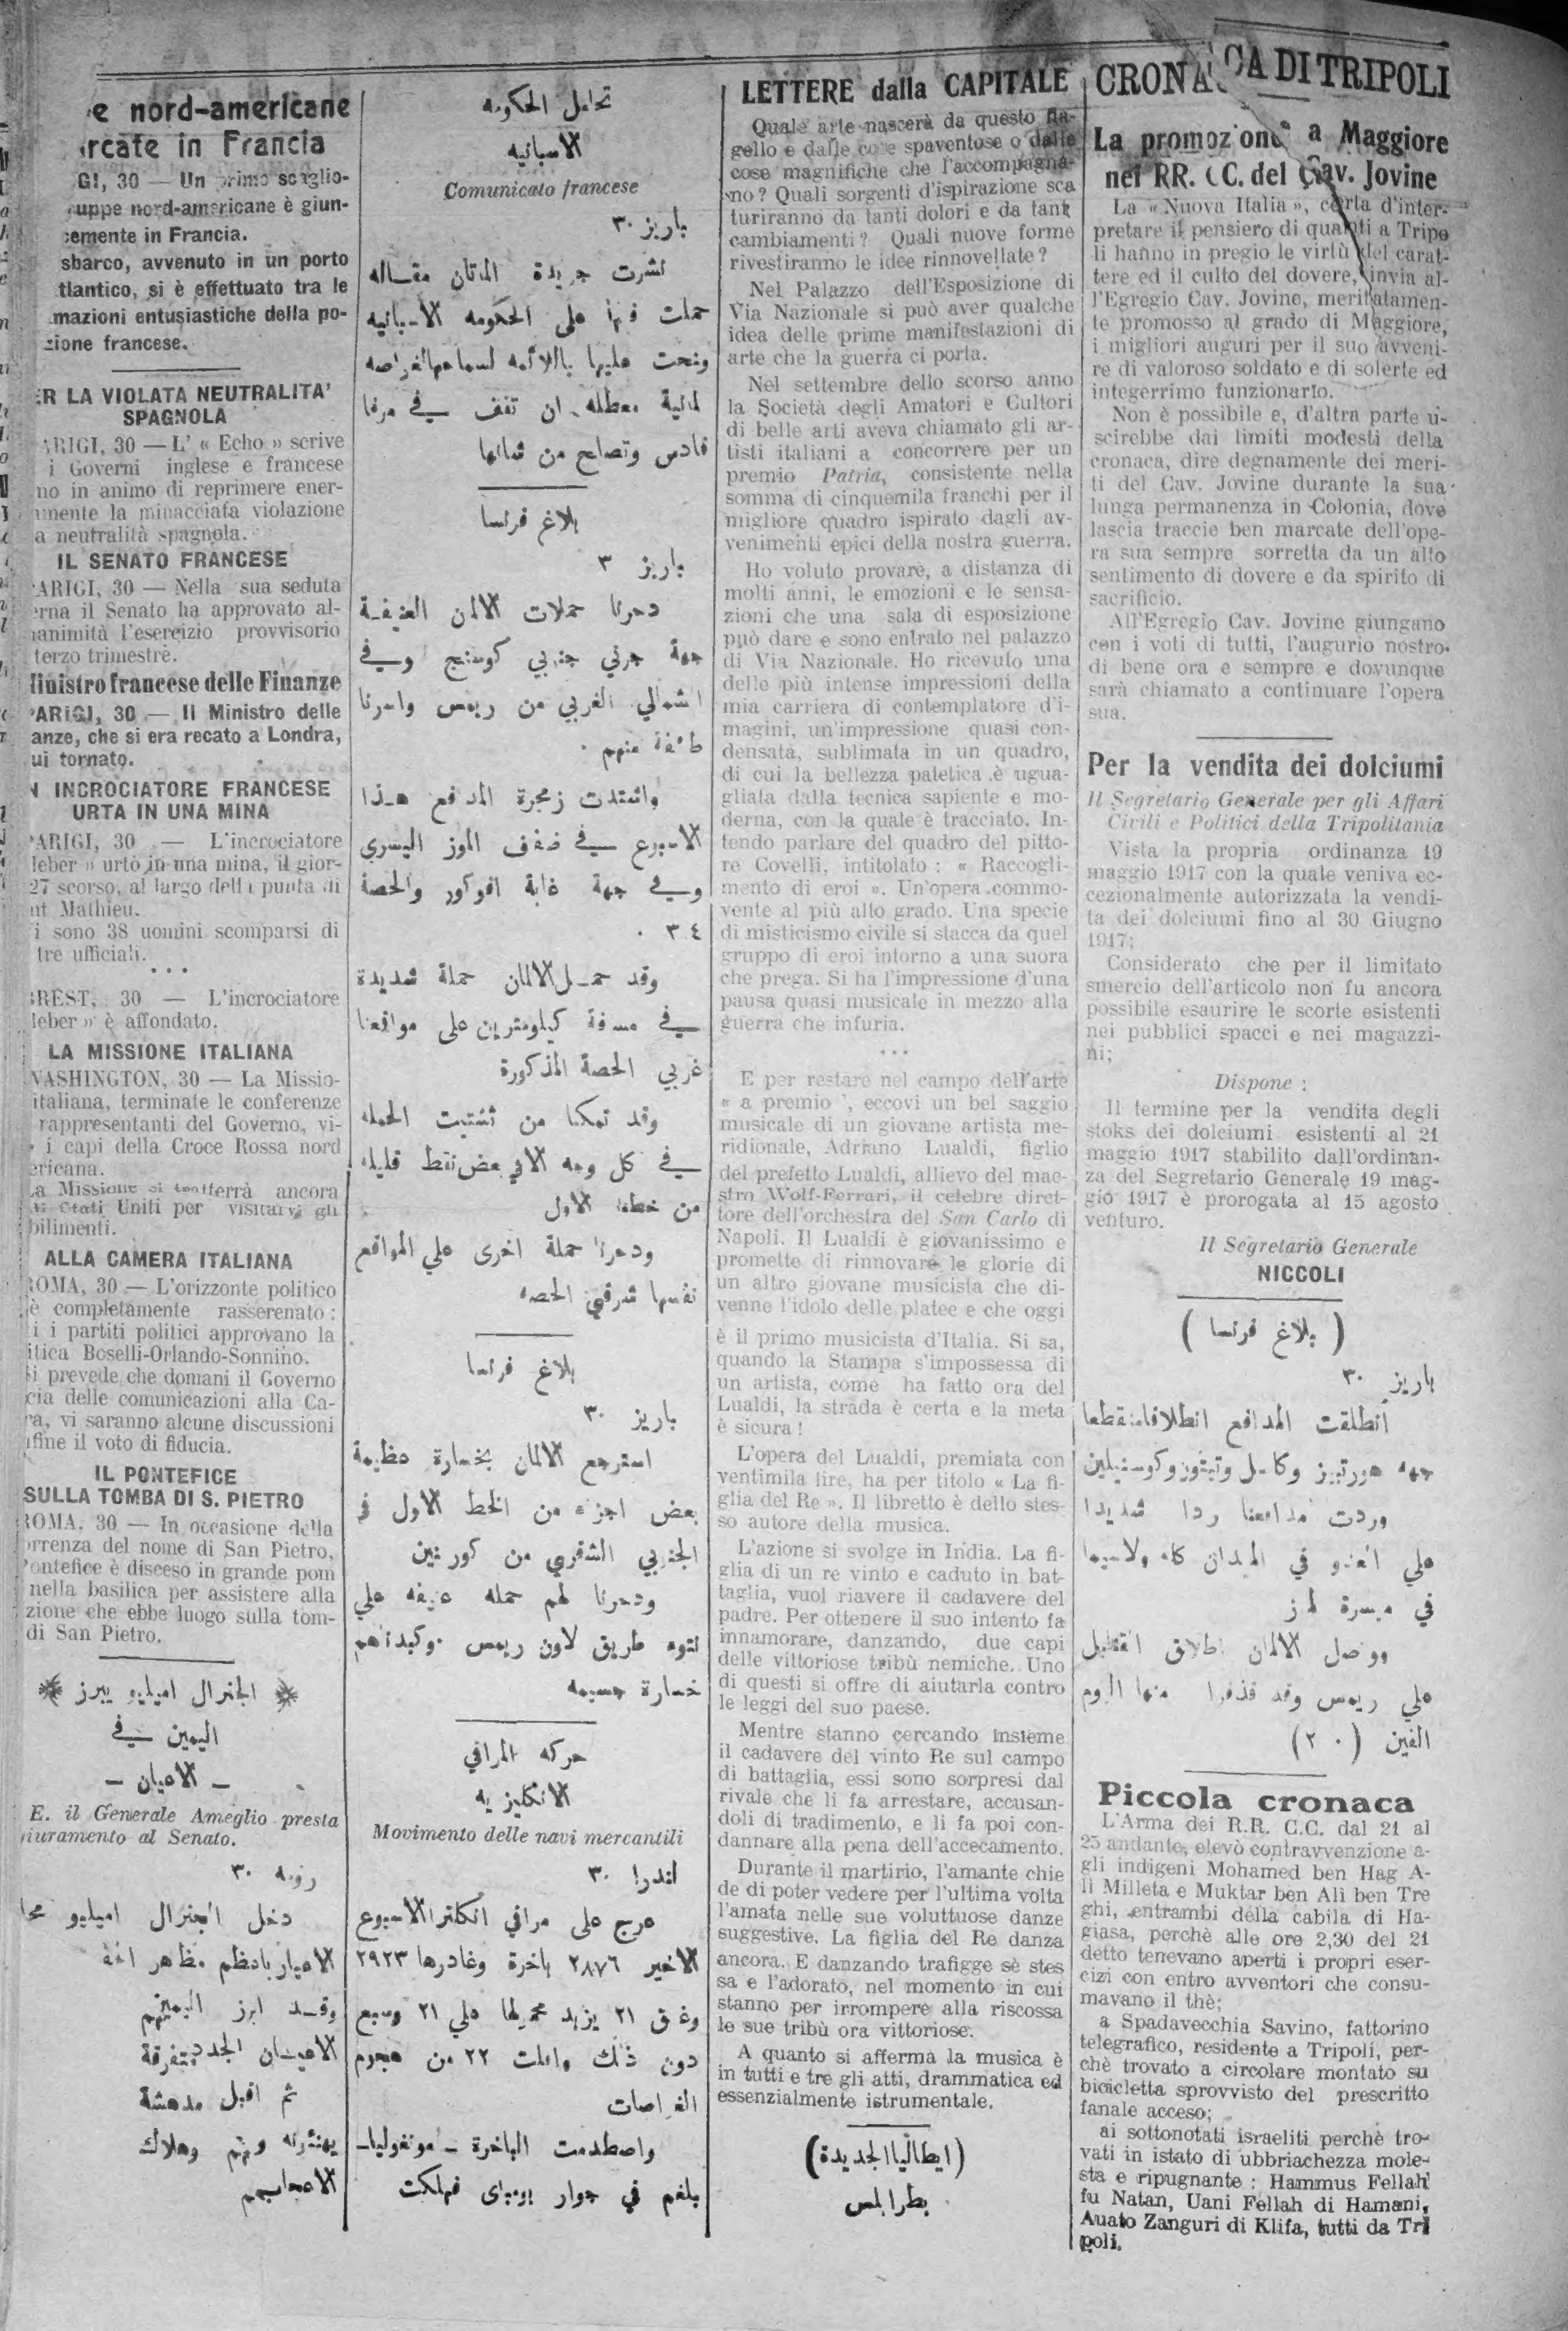 e nord-americane
rcate in Francia
GI, 30 — Un primo scaglio-
uppe nord-americane è giun-
cemente in Francia.
sbarco, avvenuto in un porto
tlantico, si è effettuato tra le
mazioni entusiastiche della po-
zione francese.
ER LA VIOLATA NEUTRALITA'
SPAGNOLA
ARIGI, 30 — L' « Echo » scrive
i Governi inglese e francese
no in animo di reprimere ener-
mente la minacciata violazione
a neutralità spagnola.
IL SENATO FRANCESE
ARIGI, 30 — Nella sua seduta
erna il Senato ha approvato al-
nanimità l'esercizio provvisorio
terzo trimestre.
Ministro francese delle Finanze
PARIGI, 30 — Il Ministro delle
anze, che si era recato a Londra,
ui tornato.
N INCROCIATORE FRANCESE
URTA IN UNA MINA
PARIGI, 30 — L'incrociatore
leber » urtò in una mina, il gior-
27 scorso, al largo della punta di
nt Mathieu.
i sono 38 uomini scomparsi di
tre ufficiali.
* * *
BREST, 30 — L'incrociatore
leber » è affondato.
LA MISSIONE ITALIANA
WASHINGTON, 30 — La Missio-
italiana, terminate le conferenze
rappresentanti del Governo, vi-
i capi della Croce Rossa nord
ericana.
La Missione si tratterrà ancora
Stati Uniti per visitarvi gli
bilimenti.
ALLA CAMERA ITALIANA
ROMA, 30 — L'orizzonte politico
è completamente rasserenato:
i i partiti politici approvano la
itica Boselli-Orlando-Sonnino.
Si prevede che domani il Governo
cia delle comunicazioni alla Ca-
ra, vi saranno alcune discussioni
nfine il voto di fiducia.
IL PONTEFICE
SULLA TOMBA DI S. PIETRO
ROMA, 30 — In occasione della
orrenza del nome di San Pietro,
Pontefice è disceso in grande pom
nella basilica per assistere alla
zione che ebbe luogo sulla tom-
di San Pietro.
الجنرال اميليو يبرز
اليمين في
— الاعيان —
E. il Generale Ameglio presta
giuramento al Senato.
رومه ٣٠
دخل الجنرال اميليو
وقد ابرز اليمين
الاعيان الجدد
ثم اقبل
تحامل الحكومه
الاسبانيه
Comunicato francese
باريز ٣٠
نشرت جريدة الماتان مقاله
حملت فيها على الحكومه الاسبانيه
لمانية معطله ان تقف في مرفا
قادس وتصلح من شانها
بلاغ فرنسا
باريز ٣
دحرنا حملات الالمان العنيفة
الشمالي الغربي من ريمس واسرنا
طائفة منهم
واشتدت زمجرة المدافع هذا
الاسبوع في ضفف الموز اليسرى
وفي جهة غابة افوكور والحصة
٣٤ .
وقد حمل الالمان حملة شديدة
في مسافة كيلومترين على مواقعنا
غربي الحصة المذكورة
وقد تمكنا من تشتيت الحمله
في كل وجه الا في بعض نقط قليله
من خطنا الاول
ودحرنا حملة اخرى علي المواقع
نفسها شرقي الحصه
بلاغ فرنسا
باريز ٣٠
استرجع الالمان بخسارة عظيمة
بعض اجزاء من الخط الاول في
الجنوبي الشرقي من كوربنين
ودحرنا لهم حمله عنيفه علي
طريق لاون ريمس وكبدناهم
خسارة جسيمه
حركه المرافي
الانكليزيه
Movimento delle navi mercantili
لندرا ٣٠
عرج على مرافي انكلترا الاسبوع
الاخير ٢٨٧٦ باخرة وغادرها ٢٩٢٣
وغرق ٢١ يزيد محمولها علي ٢١ وسبع
دون ذلك وافلت ٢٢ من هجوم
الغواصات
واصطدمت الباخرة — مونغوليا —
بلغم في جوار بومباى فهلكت
LETTERE dalla CAPITALE
Quale arte nascerà da questo fla-
gello e dalle cose spaventose o dalle
cose magnifiche che l'accompagna-
no? Quali sorgenti d'ispirazione sca
turiranno da tanti dolori e da tant
cambiamenti? Quali nuove forme
rivestiranno le idee rinnovellate?
Nel Palazzo dell'Esposizione di
Via Nazionale si può aver qualche
idea delle prime manifestazioni di
arte che la guerra ci porta.
Nel settembre dello scorso anno
la Società degli Amatori e Cultori
di belle arti aveva chiamato gli ar-
tisti italiani a concorrere per un
premio Patria, consistente nella
somma di cinquemila franchi per il
migliore quadro ispirato dagli av-
venimenti epici della nostra guerra.
Ho voluto provare, a distanza di
molti anni, le emozioni e le sensa-
zioni che una sala di esposizione
può dare e sono entrato nel palazzo
di Via Nazionale. Ho ricevuto una
delle più intense impressioni della
mia carriera di contemplatore d'i-
magini, un'impressione quasi con-
densata, sublimata in un quadro,
di cui la bellezza patetica è ugua-
gliata dalla tecnica sapiente e mo-
derna, con la quale è tracciato. In-
tendo parlare del quadro del pitto-
re Covelli, intitolato: « Raccogli-
mento di eroi ». Un'opera commo-
vente al più alto grado. Una specie
di misticismo civile si stacca da quel
gruppo di eroi intorno a una suora
che prega. Si ha l'impressione d'una
pausa quasi musicale in mezzo alla
guerra che infuria.
* * *
E per restare nel campo dell'arte
« a premio », eccovi un bel saggio
musicale di un giovane artista me-
ridionale, Adriano Lualdi, figlio
del prefetto Lualdi, allievo del mae-
stro Wolf-Ferrari, il celebre diret-
tore dell'orchestra del San Carlo di
Napoli. Il Lualdi è giovanissimo e
promette di rinnovare le glorie di
un altro giovane musicista che di-
venne l'idolo delle platee e che oggi
è il primo musicista d'Italia. Si sa,
quando la Stampa s'impossessa di
un artista, come ha fatto ora del
Lualdi, la strada è certa e la meta
è sicura!
L'opera del Lualdi, premiata con
ventimila lire, ha per titolo « La fi-
glia del Re ». Il libretto è dello stes-
so autore della musica.
L'azione si svolge in India. La fi-
glia di un re vinto e caduto in bat-
taglia, vuol riavere il cadavere del
padre. Per ottenere il suo intento fa
innamorare, danzando, due capi
delle vittoriose tribù nemiche. Uno
di questi si offre di aiutarla contro
le leggi del suo paese.
Mentre stanno cercando insieme
il cadavere del vinto Re sul campo
di battaglia, essi sono sorpresi dal
rivale che li fa arrestare, accusan-
doli di tradimento, e li fa poi con-
dannare alla pena dell'accecamento.
Durante il martirio, l'amante chie
de di poter vedere per l'ultima volta
l'amata nelle sue voluttuose danze
suggestive. La figlia del Re danza
ancora. E danzando trafigge sè stes
sa e l'adorato, nel momento in cui
stanno per irrompere alla riscossa
le sue tribù ora vittoriose.
A quanto si afferma la musica è
in tutti e tre gli atti, drammatica ed
essenzialmente istrumentale.
(ايطاليا الجديدة)
بطرابلس
CRONACA DI TRIPOLI
La promozione a Maggiore
nei RR. CC. del Cav. Jovine
La « Nuova Italia », certa d'inter-
pretare il pensiero di quanti a Tripo
li hanno in pregio le virtù del carat-
tere ed il culto del dovere, invia al-
l'Egregio Cav. Jovine, meritatamen-
te promosso al grado di Maggiore,
i migliori auguri per il suo avveni-
re di valoroso soldato e di solerte ed
integerrimo funzionario.
Non è possibile e, d'altra parte u-
scirebbe dai limiti modesti della
cronaca, dire degnamente dei meri-
ti del Cav. Jovine durante la sua
lunga permanenza in Colonia, dove
lascia traccie ben marcate dell'ope-
ra sua sempre sorretta da un alto
sentimento di dovere e da spirito di
sacrificio.
All'Egregio Cav. Jovine giungano
con i voti di tutti, l'augurio nostro
di bene ora e sempre e dovunque
sarà chiamato a continuare l'opera
sua.
Per la vendita dei dolciumi
Il Segretario Generale per gli Affari
Civili e Politici della Tripolitania
Vista la propria ordinanza 19
maggio 1917 con la quale veniva ec-
cezionalmente autorizzata la vendi-
ta dei dolciumi fino al 30 Giugno
1917;
Considerato che per il limitato
smercio dell'articolo non fu ancora
possibile esaurire le scorte esistenti
nei pubblici spacci e nei magazzi-
ni;
Dispone :
Il termine per la vendita degli
stoks dei dolciumi esistenti al 21
maggio 1917 stabilito dall'ordinan-
za del Segretario Generale 19 mag-
gio 1917 è prorogata al 15 agosto
venturo.
Il Segretario Generale
NICCOLI
( بلاغ فرنسا )
باريز ٣٠
انطلقت المدافع انطلاقا منقطعا
وردت مدافعنا ردا شديدا
علي العدو في الميدان كله ولاسيما
في ميسرة
ووصل الالمان اطلاق القنابل
علي ريمس وقد قذفوا منها اليوم
الفين (٢٠)
Piccola cronaca
L'Arma dei R.R. C.C. dal 21 al
25 andante, elevò contravvenzione a-
gli indigeni Mohamed ben Hag A-
li Milleta e Muktar ben Ali ben Tre
ghi, entrambi della cabila di Ha-
giasa, perchè alle ore 2,30 del 21
detto tenevano aperti i propri eser-
cizi con entro avventori che consu-
mavano il thè;
a Spadavecchia Savino, fattorino
telegrafico, residente a Tripoli, per-
chè trovato a circolare montato su
bicicletta sprovvisto del prescritto
fanale acceso;
ai sottonotati israeliti perchè tro-
vati in istato di ubbriachezza mole-
sta e ripugnante: Hammus Fellah
fu Natan, Uani Fellah di Hamani,
Auato Zanguri di Klifa, tutti da Tri
poli.